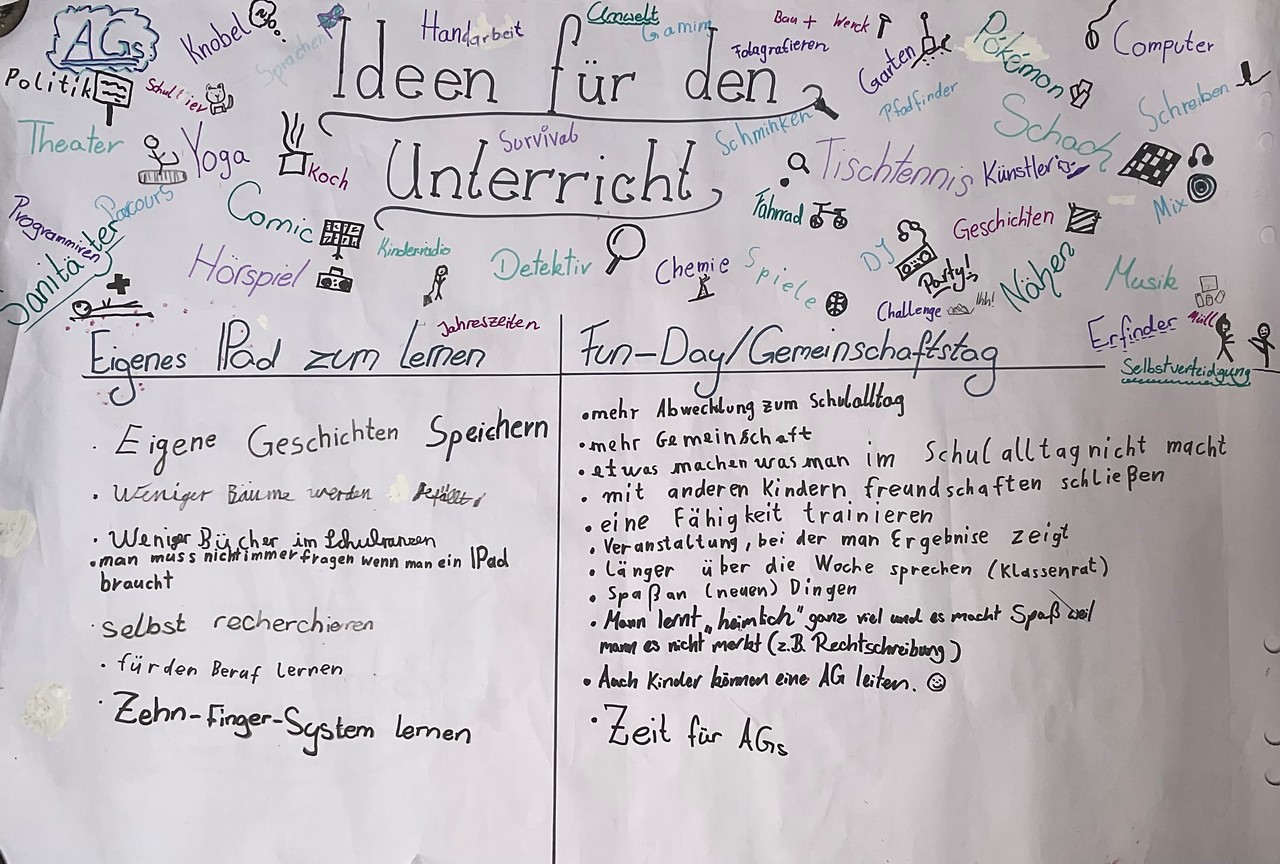 AGs
Knobel
Sprachen
Handarbeit
Umwelt
Gaming
Bau + Werck
Fotografieren
Garten
Pokémon
Computer
Politik
Schultier
Ideen für den
Pfadfinder
Schreiben
Theater
Yoga
Koch
Survival
Schminken
Schach
Unterricht
Tischtennis
Künstler
Programmiren
Parcours
Sanitäter
Comic
Fahrrad
Geschichten
Mix
Hörspiel
Kinderradio
Detektiv
Chemie
Spiele
DJ
Party!
Nähen
Musik
Challenge
Ihh!
Jahreszeiten
Erfinder
Müll
Selbstverteidigung
Eigenes IPad zum lernen
· Eigene Geschichten Speichern
· Weniger Bäume werden gefällt
· Weniger Bücher im Schulranzen
· man muss nicht immer fragen wenn man ein IPad
braucht
· selbst recherchieren
· für den Beruf lernen
· Zehn-Finger-System lernen
Fun-Day/Gemeinschaftstag
· mehr Abwecklung zum Schulalltag
· mehr Gemeinschaft
· etwas machen was man im Schulalltag nicht macht
· mit anderen Kindern freundschaften schließen
· eine Fähigkeit trainieren
· Veranstaltung, bei der man Ergebnise zeigt
· Länger über die Woche sprechen (Klassenrat)
· Spaß an (neuen) Dingen
· Mann lernt „heimlich" ganz viel und es macht Spaß weil
mann es nicht merkt (z.B. Rechtschreibung)
· Auch Kinder können eine AG leiten. ☺
· Zeit für AGs